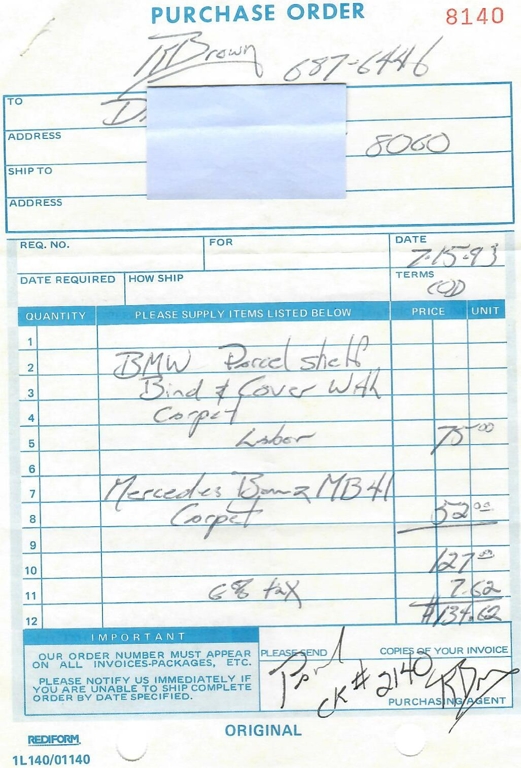 PURCHASE ORDER 8140
Brown 687-6446
TO
ADDRESS 8060
SHIP TO
ADDRESS
REQ. NO. FOR DATE 7-15-93
DATE REQUIRED HOW SHIP TERMS COD
QUANTITY PLEASE SUPPLY ITEMS LISTED BELOW PRICE UNIT
1
2 BMW Parcel shelf
3 Bind & Cover With
4 Carpet
5 Labor 75.00
6
7 Mercedes Benz MB41
8 Carpet 52.00
9
10 127.00
11 6% tax 7.62
12 $134.62
IMPORTANT
OUR ORDER NUMBER MUST APPEAR
ON ALL INVOICES-PACKAGES, ETC.
PLEASE NOTIFY US IMMEDIATELY IF
YOU ARE UNABLE TO SHIP COMPLETE
ORDER BY DATE SPECIFIED.
PLEASE SEND COPIES OF YOUR INVOICE
Paid CK # 2140
PURCHASING AGENT
REDIFORM
1L140/01140
ORIGINAL